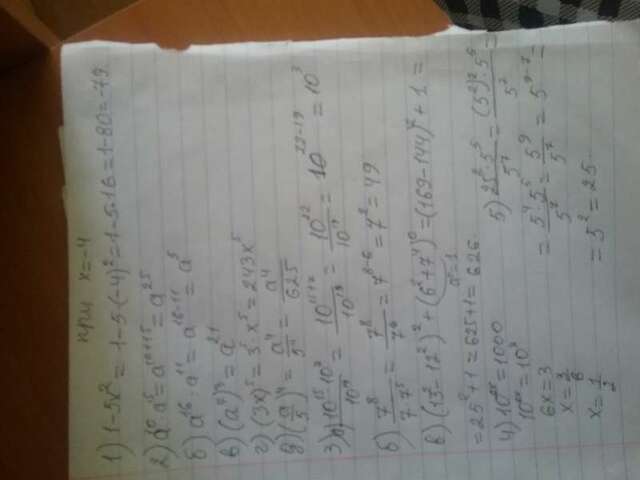 при x=-4
1) 1-5x² = 1-5·(-4)² = 1-5·16 = 1-80 = -79
2) a¹⁰·a¹⁵ = a¹⁰⁺¹⁵ = a²⁵
б) a¹⁶ · a¹¹ = a¹⁶⁻¹¹ = a⁵
в) (a⁷)³ = a²¹
г) (3x)⁵ = 3⁵·x⁵ = 243x⁵
д) (a/5)⁴ = a⁴/5⁴ = a⁴/625
3) а) 10¹⁵·10⁷/10¹⁹ = 10¹⁵⁺⁷/10¹⁹ = 10²²/10¹⁹ = 10²²⁻¹⁹ = 10³
б) 7⁸/7·7⁵ = 7⁸/7⁶ = 7⁸⁻⁶ = 7² = 49
в) (13²-12²)² + (6²+7⁴)⁰ = (169-144)² + 1 =
a⁰=1
= 25²+1 = 625+1 = 626.
4) 10⁶ˣ = 1000
10⁶ˣ = 10³
6x = 3
x = 3/6
x = 1/2
5) 25²·5⁵/5⁷ = (5²)²·5⁵/5⁷ =
= 5⁴·5⁵/5⁷ = 5⁹/5⁷ = 5⁹⁻⁷ =
= 5² = 25.